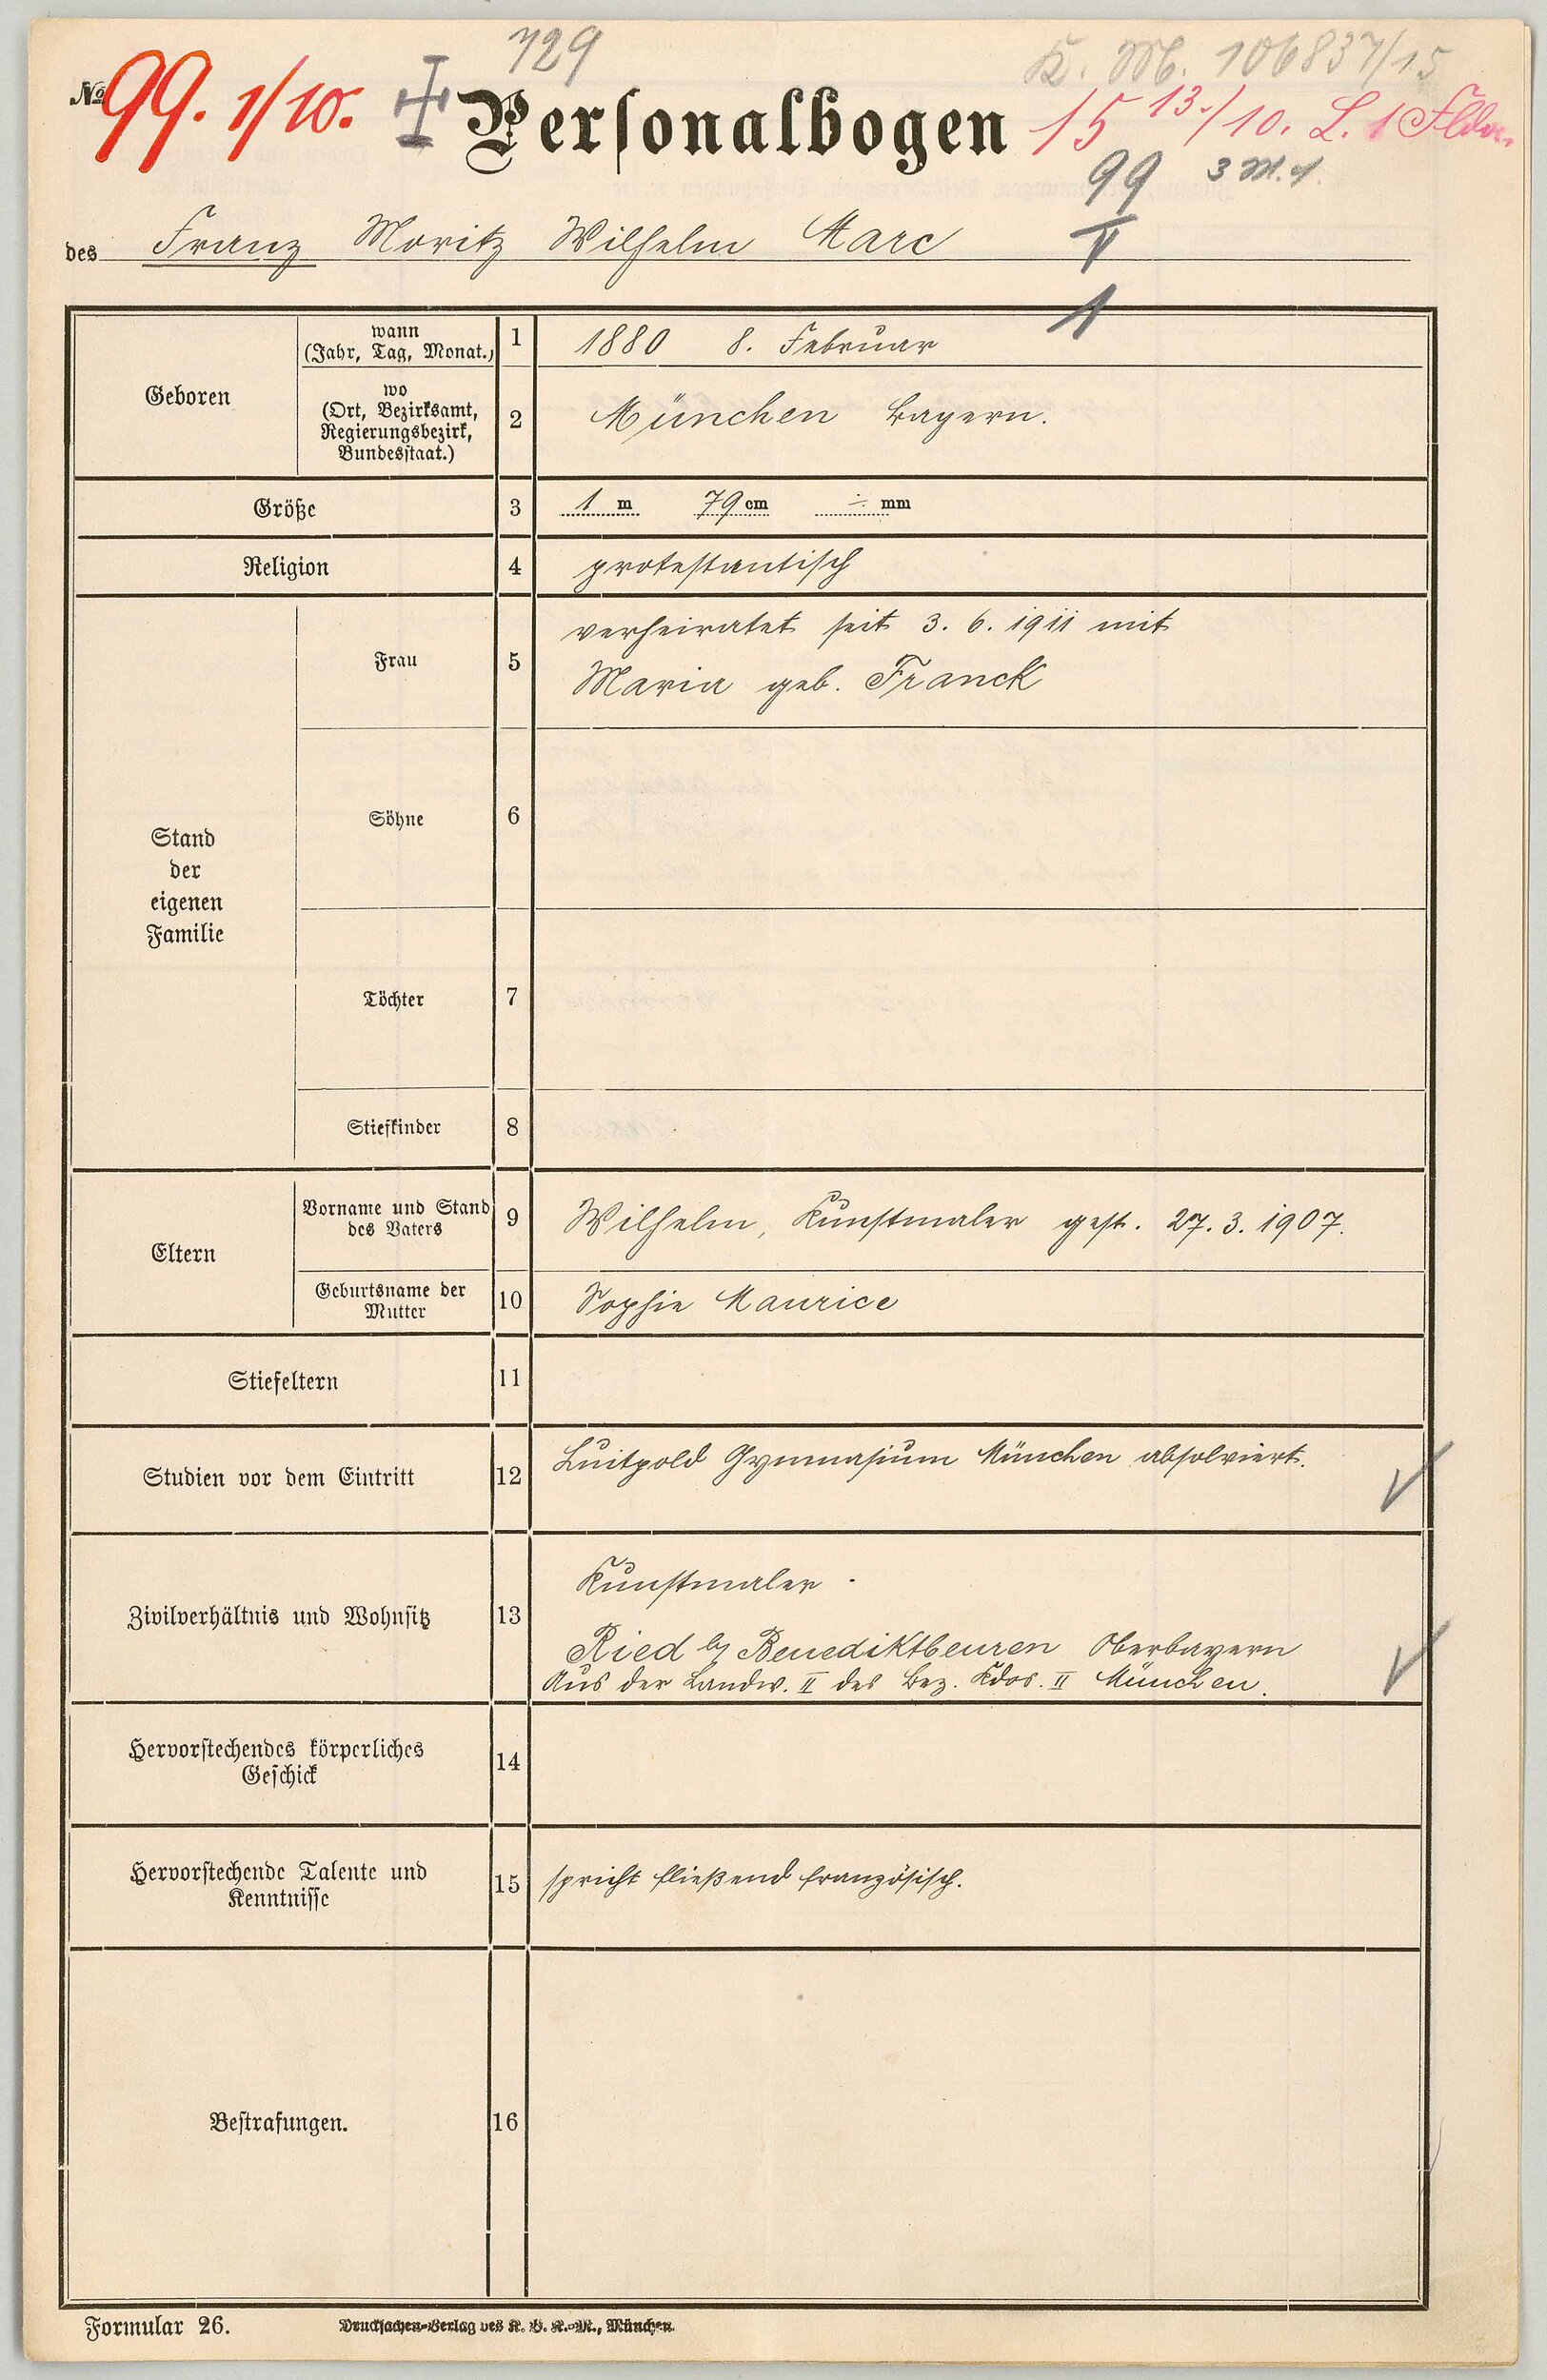 729
K. M. 106837/15
No 99. 1/10. Personalbogen 15 13./10. L. 1
99 3 M. 1.
V
1
des Franz Moritz Wilhelm Marc
Geboren
wann
(Jahr, Tag, Monat.)
1
1880 8. Februar
wo
(Ort, Bezirksamt,
Regierungsbezirk,
Bundesstaat.)
2
München Bayern.
Größe 3 1 m 79 cm ÷ mm
Religion 4 protestantisch
Stand
der
eigenen
Familie
Frau 5
verheiratet seit 3. 6. 1911 mit
Maria geb. Franck
Söhne 6
Töchter 7
Stiefkinder 8
Eltern
Vorname und Stand
des Vaters
9
Wilhelm, Kunstmaler gest. 27. 3. 1907.
Geburtsname der
Mutter
10
Sophie Maurice
Stiefeltern 11
Studien vor dem Eintritt 12
Luitpold Gymnasium München absolviert.
Zivilverhältnis und Wohnsitz 13
Kunstmaler.
Ried b/ Benediktbeuren Oberbayern
Aus der Landw. II des Bez. Kdos. II München.
Hervorstechendes körperliches
Geschick
14
Hervorstechende Talente und
Kenntnisse
15
spricht fließend französisch.
Bestrafungen. 16
Formular 26. Drucksachen-Verlag des K. B. K.-M., München.